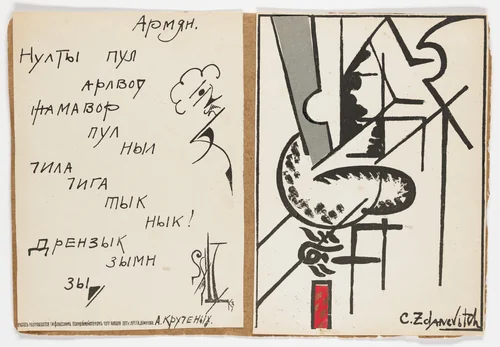 Армян.
Нулты пул
арлвод
жамавор
пул
ныи
тила
тига
тык
нык!
Дрензык
зымн
зы
А. Крученых.
C. Zdanevitch